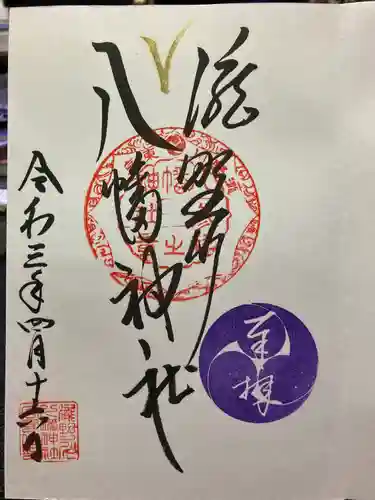 瀧野川
八幡神社
奉拝
令和三年四月十六日